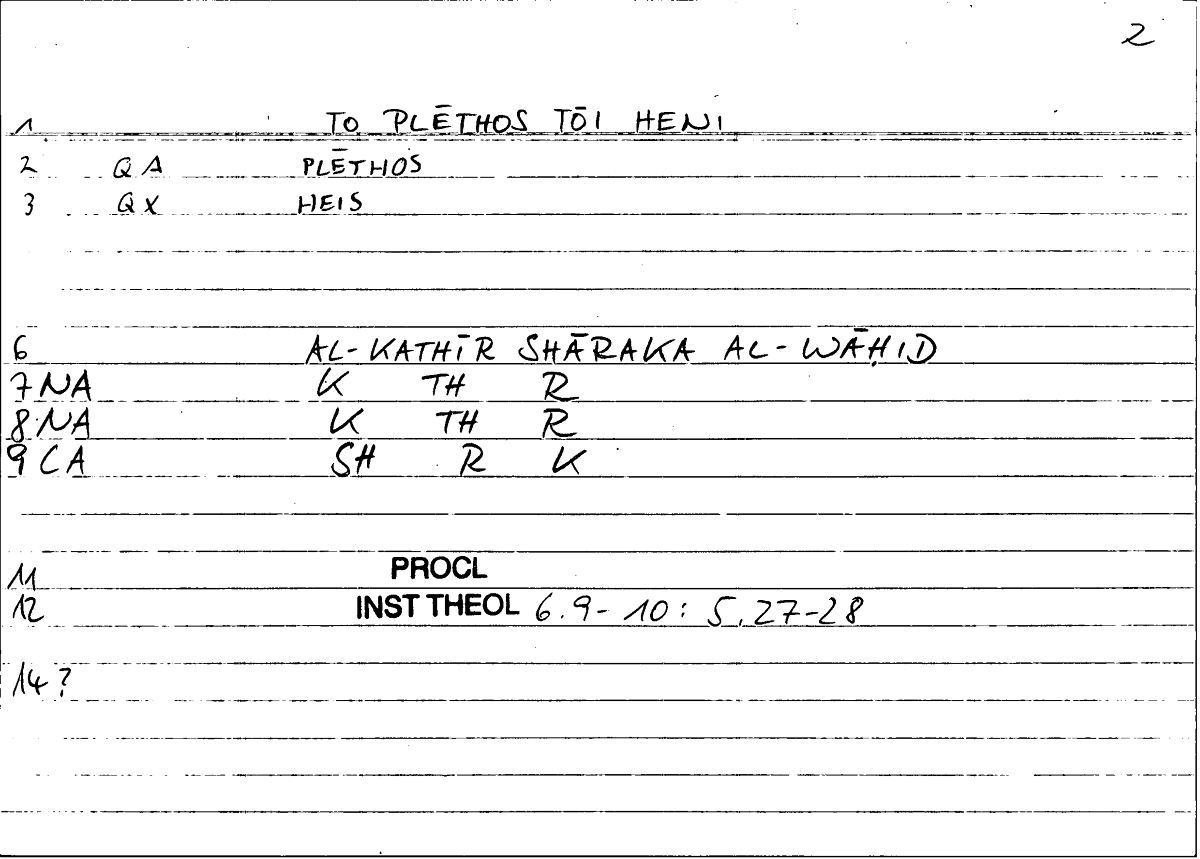 2
1 TO PLĒTHOS TŌI HENI
2 QA PLĒTHOS
3 QX HEIS
6 AL-KATHĪR SHĀRAKA AL-WĀḤID
7 NA K TH R
8 NA K TH R
9 CA SH R K
11 PROCL
12 INST THEOL 6.9-10: 5,27-28
14?